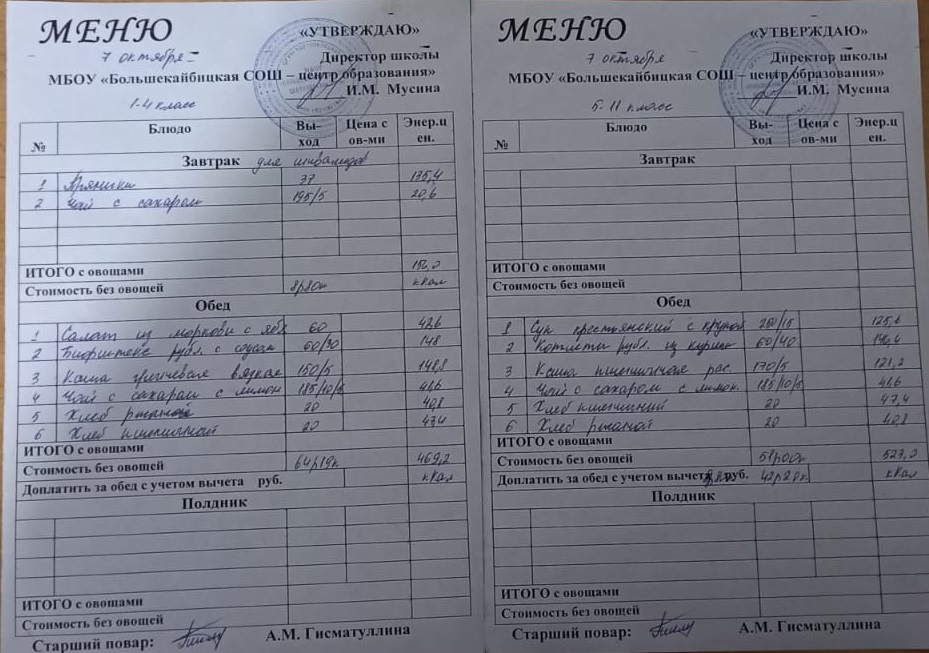 МЕНЮ
7 октября
«УТВЕРЖДАЮ»
Директор школы
МБОУ «Большекайбицкая СОШ – центр образования»
И.М. Мусина
1-4 класс
№ Блюдо Вы-ход Цена с ов-ми Энер.ц ен.
Завтрак для инвалидов
1 Пряники 37 135,4
2 Чай с сахаром 195/5 20,6
ИТОГО с овощами 156,0
Стоимость без овощей 8р80к ккал
Обед
1 Салат из моркови с ябл 60 42,6
2 Бифштекс рубл. с соусом 60/30 148
3 Каша гречневая вязкая 150/5 148,8
4 Чай с сахаром с лимон 185/10/5 41,6
5 Хлеб ржаной 20 40,8
6 Хлеб пшеничной 20 47,4
ИТОГО с овощами
Стоимость без овощей 64р19к 469,2
Доплатить за обед с учетом вычета руб. ккал
Полдник
ИТОГО с овощами
Стоимость без овощей
Старший повар: А.М. Гисматуллина
МЕНЮ
7 октября
«УТВЕРЖДАЮ»
Директор школы
МБОУ «Большекайбицкая СОШ – центр образования»
И.М. Мусина
5-11 класс
№ Блюдо Вы-ход Цена с ов-ми Энер.ц ен.
Завтрак
ИТОГО с овощами
Стоимость без овощей
Обед
1 Суп крестьянский с крупой 250/15 125,6
2 Котлеты рубл. из курицы 60/40
3 Каша пшеничная рас. 170/5 121,2
4 Чай с сахаром с лимон. 185/10/5 41,6
5 Хлеб пшеничный 20 47,4
6 Хлеб ржаной 20 40,8
ИТОГО с овощами
Стоимость без овощей 51р00к 523,0
Доплатить за обед с учетом вычета руб. 42р20к ккал
Полдник
ИТОГО с овощами
Стоимость без овощей
Старший повар: А.М. Гисматуллина